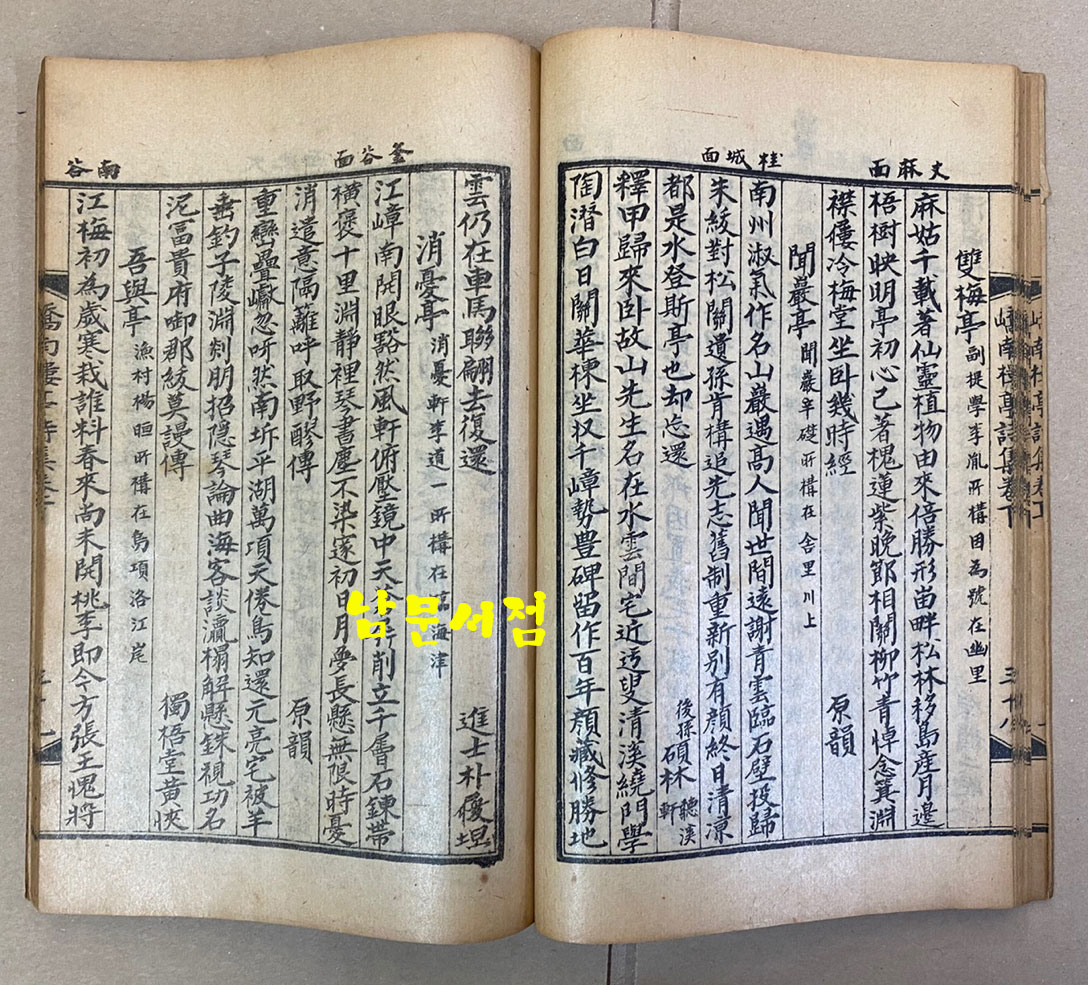 丈麻面
桂城面
雙梅亭 副提學李胤所構因為號在幽里
麻姑千載著仙靈植物由來倍勝形苗畔松林移島産月邊
梧樹映明亭初心已著槐蓮紫晩節相關柳竹青悼念箕淵
襟僾冷梅堂坐卧幾時經 原韻
聞巖亭 聞巖辛礎所構在舍里川上
南州淑氣作名山巖遇高人聞世間遠謝青雲臨石壁投歸
朱綾對松關遺孫肯構追先志舊制重新別有顔終日清凉
都是水登斯亭也却忘還 後孫碩林 聽溪軒
釋甲歸來卧故山先生名在水雲間宅近透叟清溪繞門學
陶潛白日關華棟坐权千嶂勢豊碑留作百年顔藏修勝地
釜谷面
南谷
雲仍在車馬聯翩去復還 進士朴瘦坦
消憂亭 消憂軒李道一所構在臨海津
江嶂南開眼豁然風軒俯壓鏡中天 削立千層石鍊帶
橫褒十里淵靜裡琴書塵不染寰初日月夢長懸無限時憂
消遣意隔離呼取野醪傳 原韻
重巒疊巘忽呀然南坼平湖萬項天倦鳥知還元亮宅被羊
垂釣子陵淵剡朋招隐琴論曲海客談瀛榻解懸銖視功名
泥富貴府啣郡綾莫謾傳 獨梧堂黃俠
吾與亭 漁村楊晅所構在烏項洛江岸
江梅初為歲寒栽誰料春來尚未開桃李即今方張王愧將
嶠南樓亭詩集卷下
三十八
남문서점